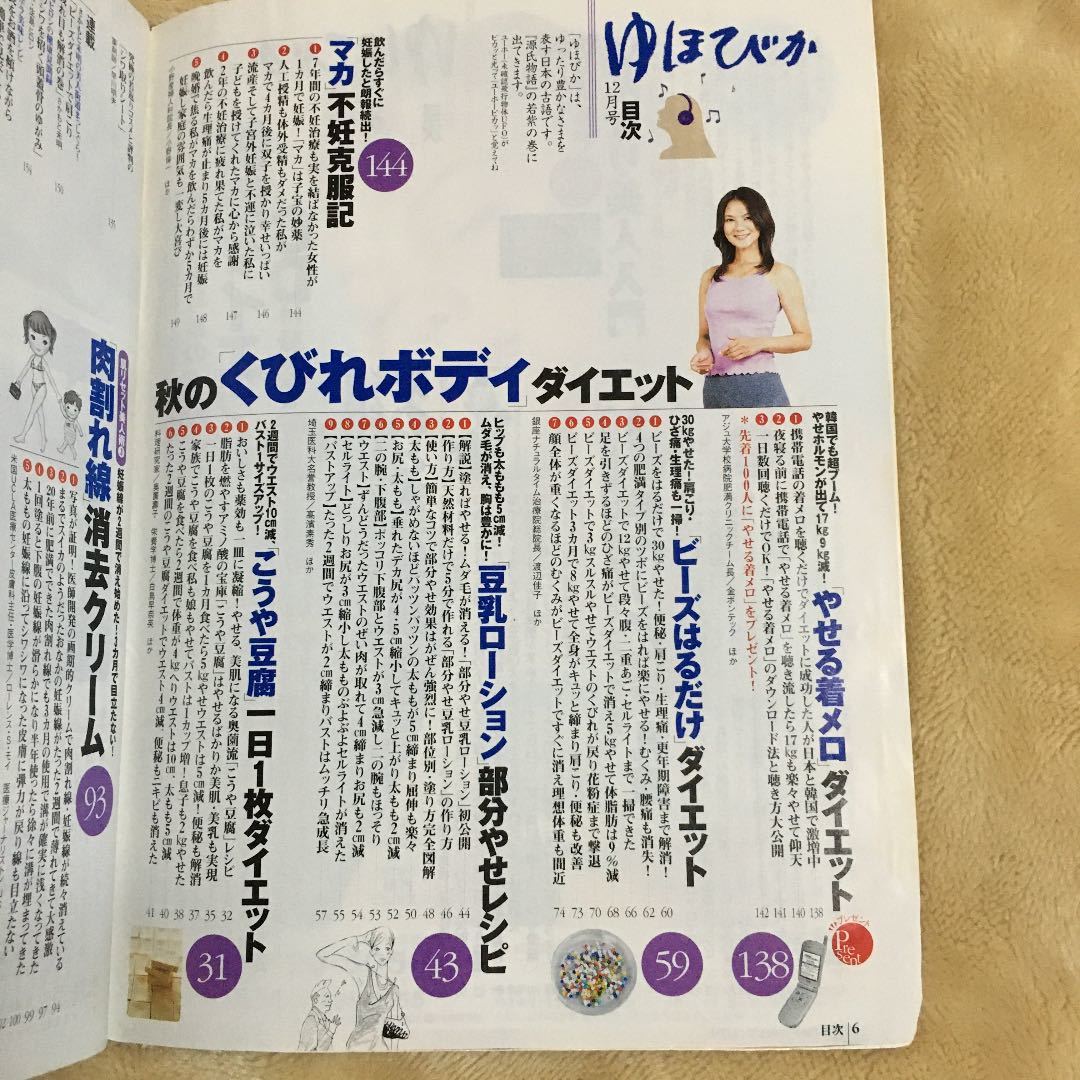 ゆほびか
12月号
目次
「ゆほびか」は、
ゆったり豊かなさまを
表す日本の古語です。
『源氏物語』の若紫の巻に
出てきます。
飲んだらすぐに
妊娠したと朗報続出！
「マカ」不妊克服記
144
1 7年間の不妊治療も実を結ばなかった女性が
1カ月で妊娠！「マカ」は子宝の妙薬 144
2 人工授精も体外受精もダメだった私が
マカで4カ月後に双子を授かり幸せいっぱい 146
3 流産そして子宮外妊娠と不運に泣いた私に
子どもを授けてくれたマカに心から感謝 147
4 2年の不妊治療に疲れ果てた私がマカを
飲んだら生理痛が止まり5カ月後には妊娠 148
5 晩婚で焦る私がマカを飲んだらわずか5カ月で
妊娠し家庭の雰囲気も一変し大喜び 149
秋の「くびれボディ」ダイエット
韓国でも超ブーム！
やせホルモンが出て17kg 9kg減！
「やせる着メロ」ダイエット
1 携帯電話の着メロを聴くだけでダイエットに成功した人が日本と韓国で激増中 138
2 夜寝る前に携帯電話で「やせる着メロ」を聴き流したら17kgも楽々やせて仰天 140
3 一日数回聴くだけでOK！「やせる着メロ」のダウンロード法と聴き方大公開 141
＊先着100人に「やせる着メロ」をプレゼント！ 142
アジュ大学校病院肥満クリニックチーム長／金ボンテック ほか
プレゼント
Present
138
30kgやせた！肩こり・
ひざ痛・生理痛も一掃！
「ビーズはるだけ」ダイエット
1 ビーズをはるだけで30kgやせた！便秘・肩こり・生理痛・更年期障害まで解消！ 60
2 4つの肥満タイプ別のツボにビーズをはれば楽にやせる！むくみ・腰痛も消失！ 62
3 ビーズダイエットで12kgやせて段々腹・二重あご・セルライトまで一掃できた 66
4 足を引きずるほどのひざ痛がビーズダイエットで消え5kgやせて体脂肪は9％減 68
5 ビーズダイエットで3kgスルスルやせてウエストのくびれが戻り花粉症まで撃退 70
6 ビーズダイエット3カ月で8kgやせて全身がキュッと締まり肩こり・便秘も改善 73
7 顔全体が重くなるほどのむくみがビーズダイエットですぐに消え理想体重も間近 74
銀座ナチュラルタイム治療院総院長／渡辺佳子 ほか
59
ヒップも太ももも5cm減！
ムダ毛が消え、胸は豊かに！
「豆乳ローション」部分やせレシピ
1 【解説】塗ればやせる！ムダ毛が消える！「部分やせ豆乳ローション」初公開 44
2 【作り方】天然材料だけで5分で作れる「部分やせ豆乳ローション」の作り方 46
3 【使い方】簡単なコツで部分やせ効果はがぜん強烈に！部位別・塗り方完全図解 48
4 【太もも】しゃがめないほどパッツンの太ももが5cm締まり屈伸も楽々 50
5 【お尻・太もも】垂れたデカ尻が4・5cm縮小してキュッと上がり太ももも2cm減 52
6 【二の腕・下腹部】ポッコリ下腹部とウエストが3cm急減し二の腕もほっそり 53
7 【ウエスト】ずんどうだったウエストのぜい肉が取れて4cm締まりお尻も2cm減 54
8 【セルライト】どっしりお尻が3cm縮小し太もものぷよぷよセルライトが消えた 55
9 【バストアップ】たった2週間でウエストが2cm締まりバストはムッチリ急成長 57
埼玉医科大名誉教授／高濱素秀 ほか
43
2週間でウエスト10cm減、
バスト1サイズアップ！
「こうや豆腐」一日1枚ダイエット
1 おいしさも薬効も一皿に凝縮！やせる、美肌になる奥薗流「こうや豆腐」レシピ 32
2 脂肪を燃やすアミノ酸の宝庫「こうや豆腐」はやせるばかりか美肌、美乳も実現 35
3 一日1枚のこうや豆腐を1カ月食べたら5kgやせウエストは5cm減！便秘も解消 37
4 家族でこうや豆腐を食べ私も娘もやせてバストは1カップ増！息子も2kgやせた 38
5 こうや豆腐を食べたら2週間で体重が4kgへりウエストは10cm、太ももも5cm減 40
6 たった2週間のこうや豆腐ダイエットでウエスト4cm減、便秘もニキビも消えた 41
料理研究家／奥薗壽子 栄養学博士／白鳥早奈英 ほか
31
目次 6
妊娠線が2週間で消え始めた！3カ月で目立たない！
「肉割れ線」消去クリーム
93
1 写真が証明！医師開発の画期的クリームで肉割れ線・妊娠線が続々消えている 94
2 まるでスイカのようだったおなかの妊娠線がたった2週間で薄れてきて大感激 97
3 20年前に肥満でできた肉割れ線でも3カ月の使用で溝が確実に浅くなってきた 99
4 1回塗ると下腹の妊娠線が滑らかになり半年使ったら徐々に溝が埋まってきた 100
5 太ももの妊娠線に沿ってシワシワになった皮膚に弾力が戻り線も目立たない
連載